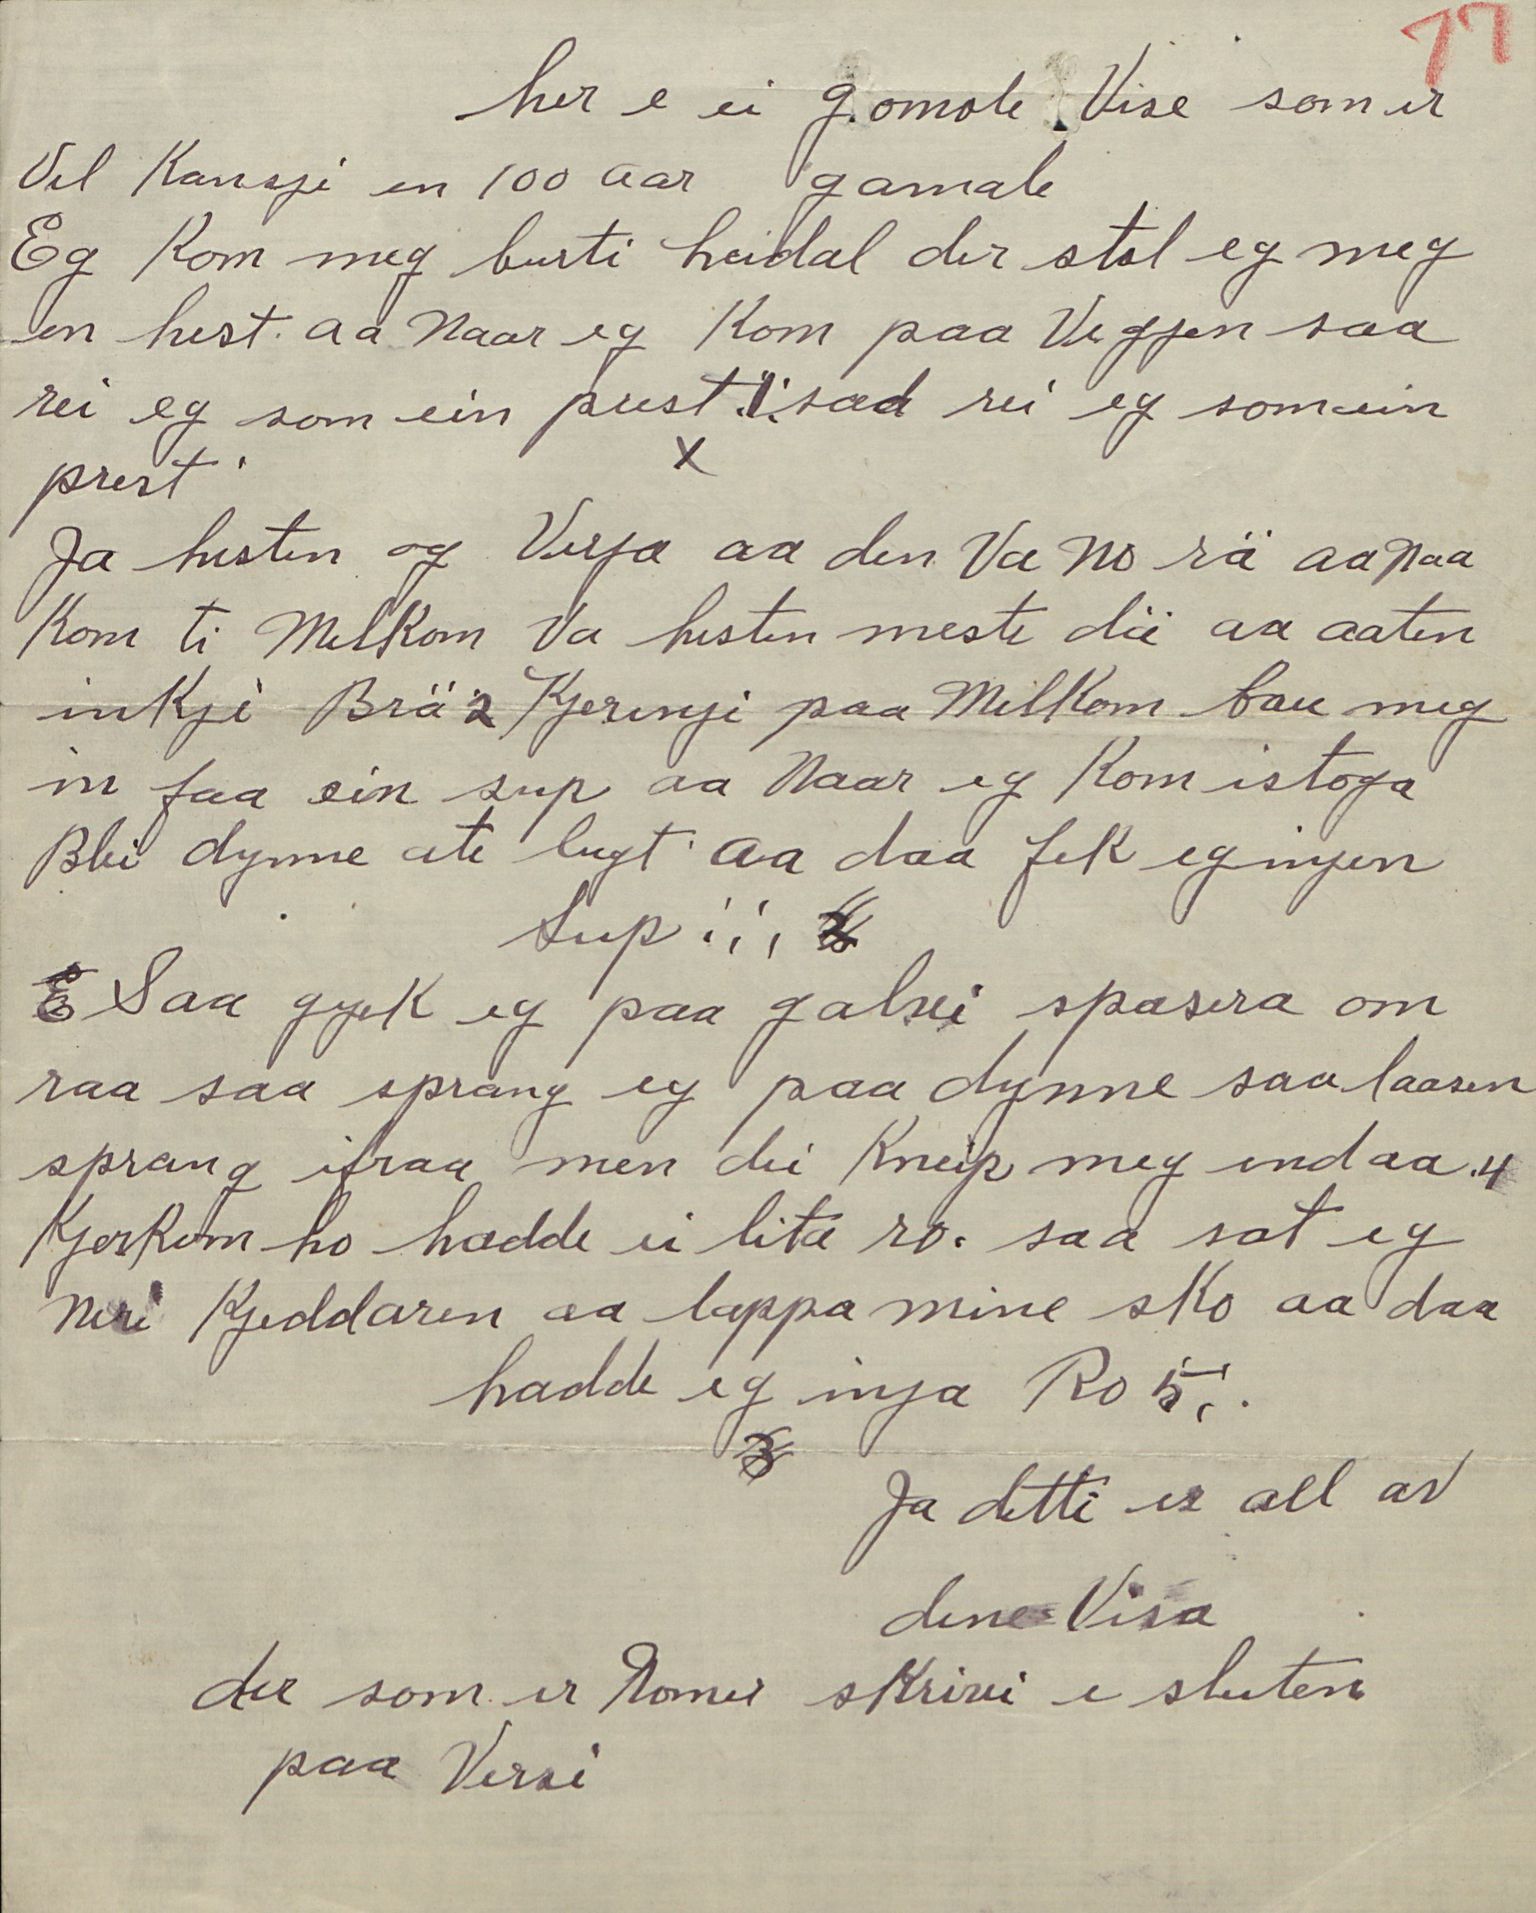 77
her e ei gomole Vise som er
Vel Kansji en 100 aar gamale
Eg Kom meg burti heidal der stol eg meg
en hest. aa Naar eg Kom paa Veggjen saa
rei eg som ein prest .1. saa rei eg som ein
prest
x
Ja hesten og Verja aa den Va no rä aa naa
Kom ti MelKom Va hesten meste däi aa aaten
inKje Brä 2 Kjerinji paa MelKom bau meg
in faa ein sup aa Naar eg Kom istoga
Blei dynne ate lugt aa daa feK eg injen
Sup 3
Saa gjeK eg paa galvei spasera om
raa saa sprang eg paa dynne saa laasen
sprang ifraa men dei Kneip meg endaa .4
KjerKom ho hadde ei lita ro. saa sat eg
Neri Kjeddaren aa lappa mine sKo aa daa
hadde eg inja Ro 5.
3
Ja detti er all av
dene Visa
der som er Nomer sKrivi e sluten
paa Versi